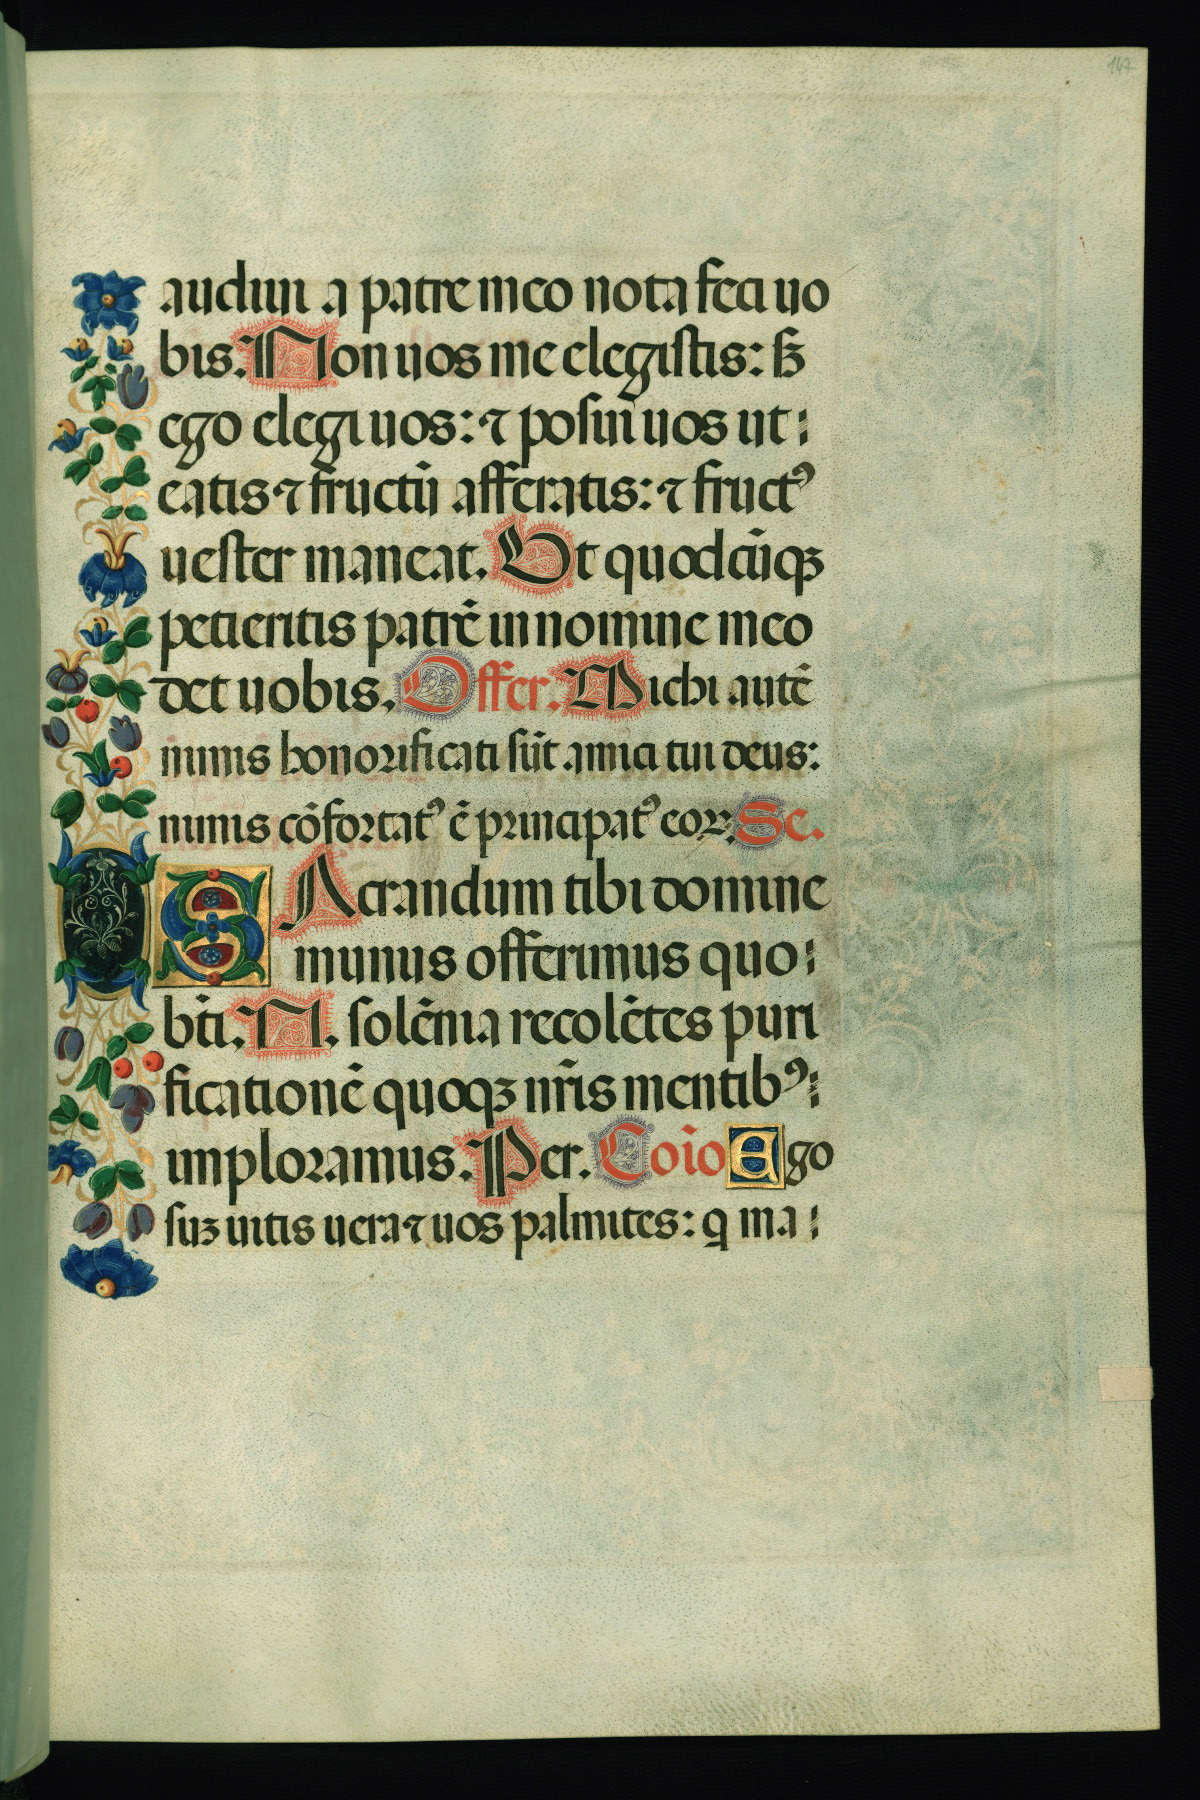 147
audiui a patre meo nota feci uo
bis. Non uos me elegistis: sꝫ
ego elegi uos: ⁊ posui uos ut:
eatis ⁊ fructū afferatis: ⁊ fructꝰ
uester maneat. Ut quodcūqꝫ
petieritis patrē in nomine meo
det uobis. Offer. Michi autē
nimis honorificati sūt amici tui deus:
nimis cōfortatꝰ ē principatꝰ eoꝝ. Se.
SAcrandum tibi domine
munus offerimus quo:
bt̄i. N. solēnia recolētes puri
ficationē quoqꝫ nr̄is mentibꝰ:
imploramus. Per. Coīo Ego
suꝫ uitis uera ⁊ uos palmites: q ma: